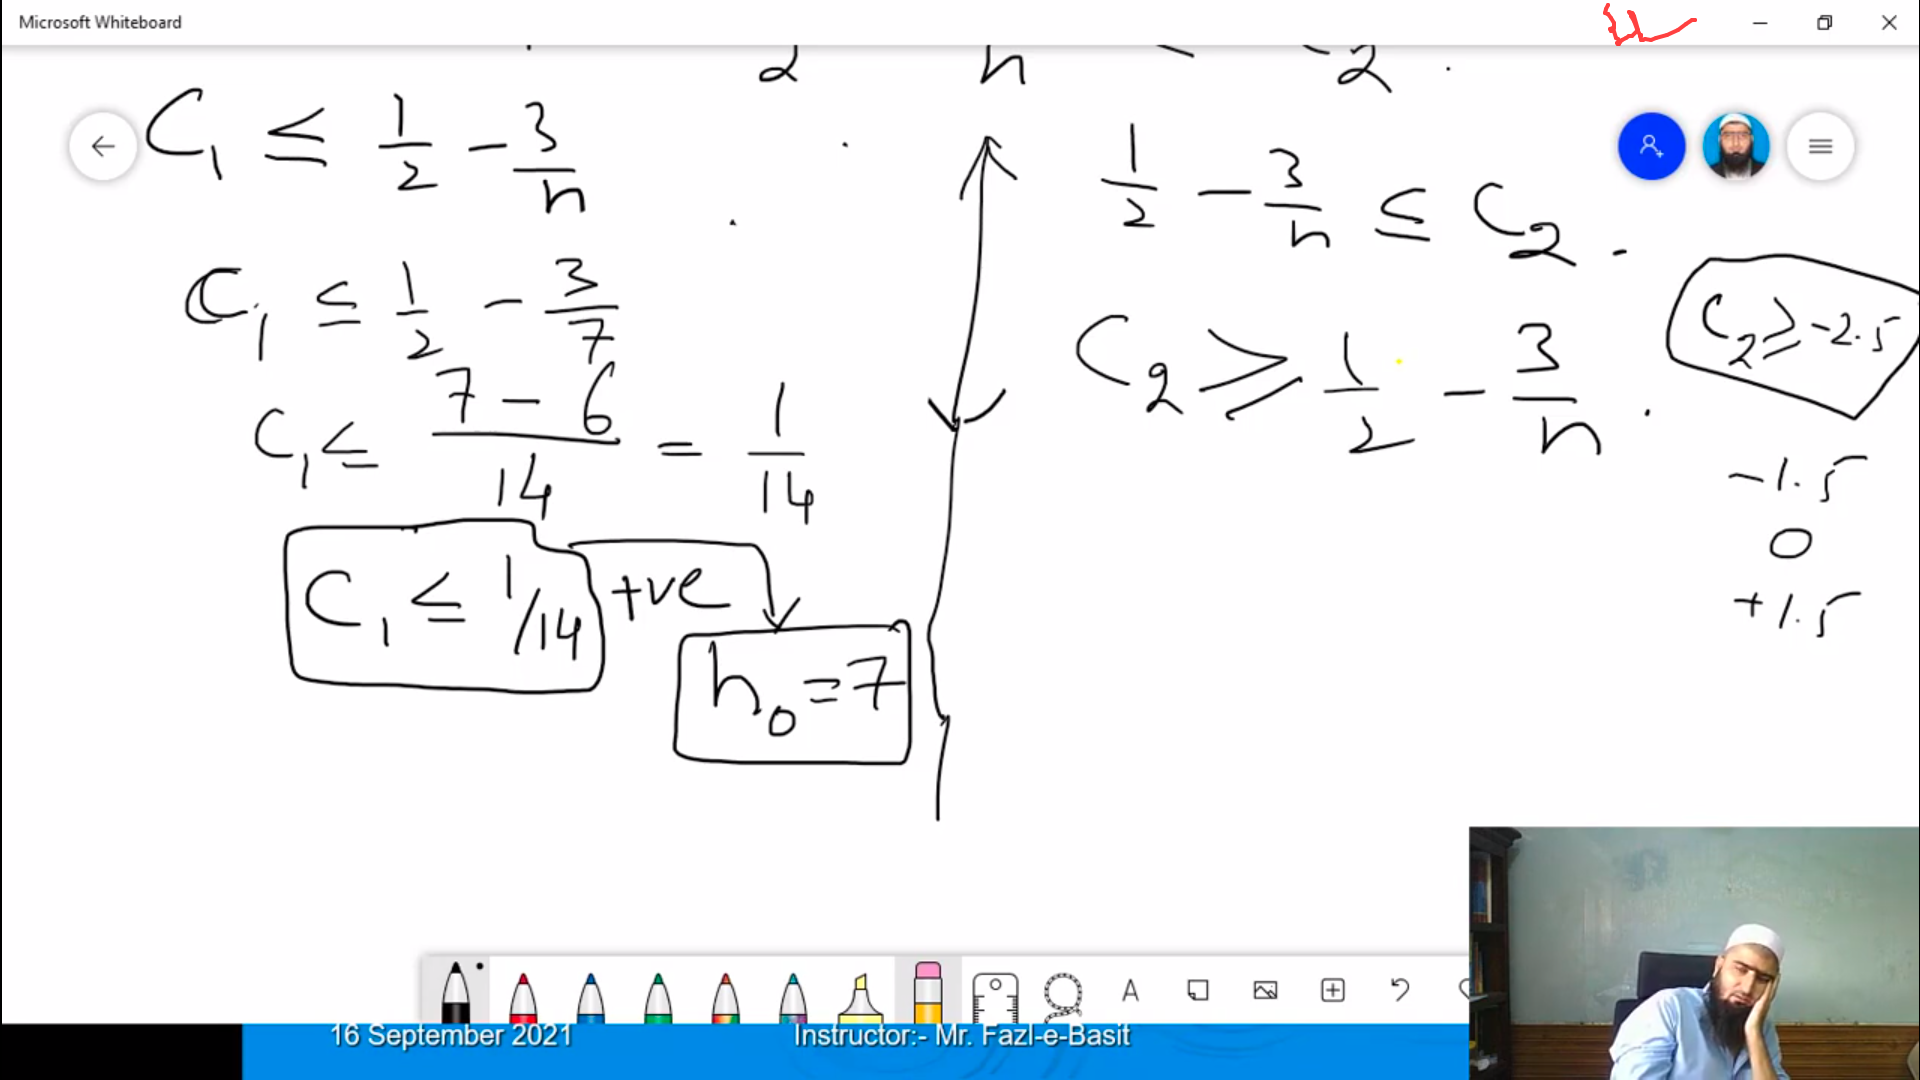 Microsoft Whiteboard
C₁ ≤ 1/2 - 3/n
C₁ ≤ 1/2 - 3/7
C₁ ≤ (7 - 6)/14 = 1/14
C₁ ≤ 1/14 +ve
n₀ = 7
1/2 - 3/n ≤ C₂.
C₂ ≥ 1/2 - 3/n.
C₂ ≥ -2.5
-1.5
0
+1.5
A
16 September 2021
Instructor:- Mr. Fazl-e-Basit